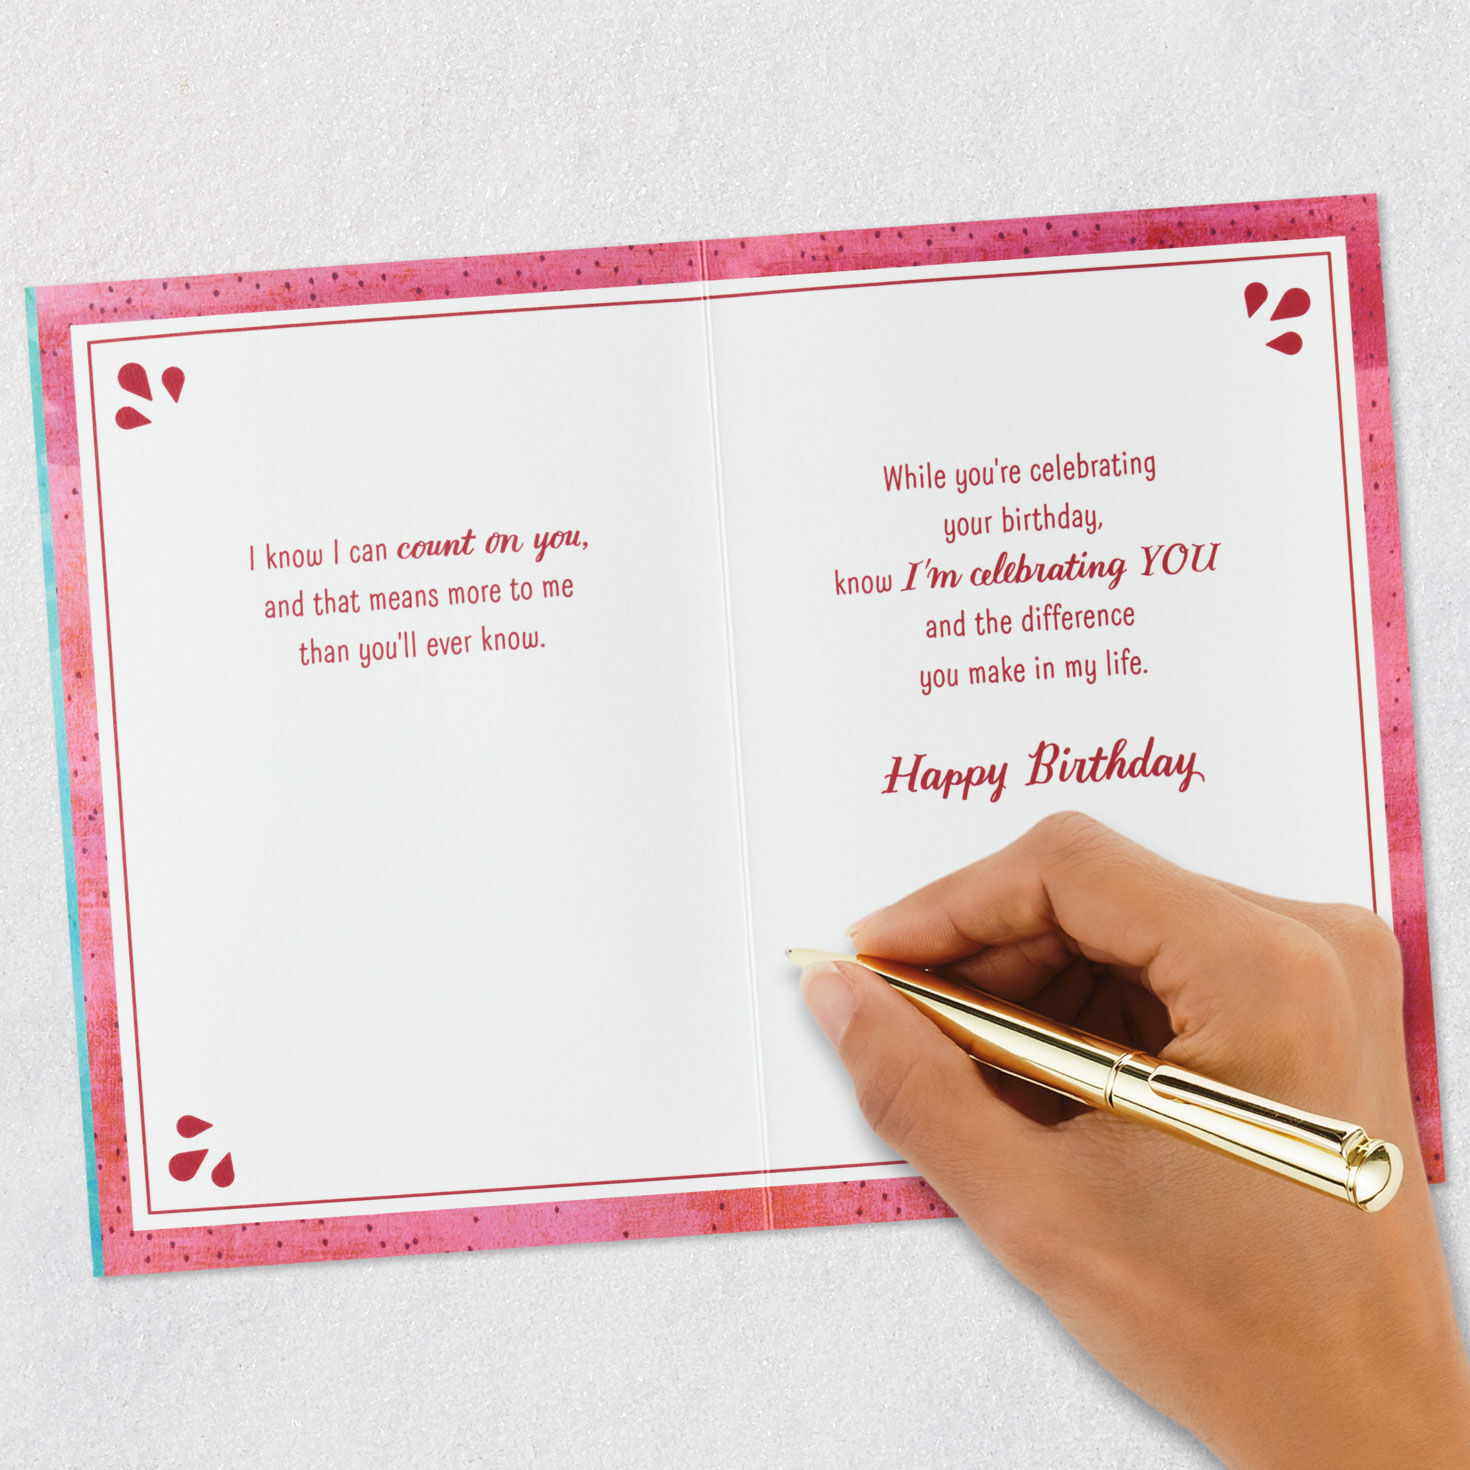 I know I can count on you,
and that means more to me
than you'll ever know.
While you're celebrating
your birthday,
know I'm celebrating YOU
and the difference
you make in my life.
Happy Birthday